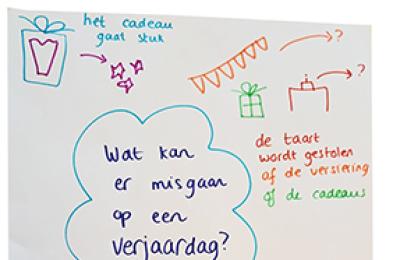 het cadeau
gaat stuk
?
?
de taart
wordt gestolen
of de versiering
of de cadeaus
Wat kan
er misgaan
op een
verjaardag?